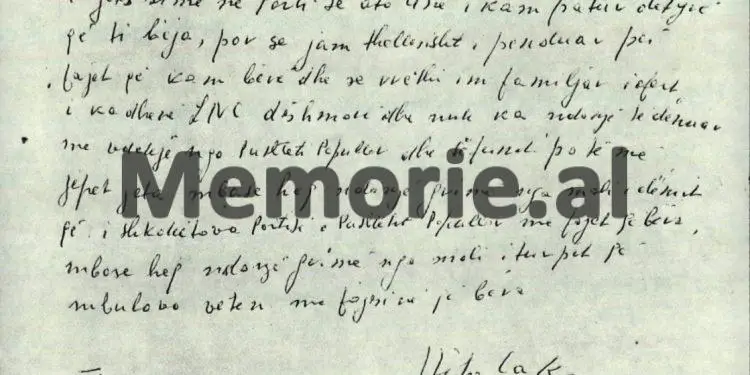 time në Parti se ato i kam patur detyrë
që ti bëja, por se jam thellësisht i penduar për
fajet që kam bërë dhe se rrethi im familjar i afërt
i ka dhënë LNC dëshmorë dhe nuk ka ndonjë të dënuar
me vdekje nga Pushteti Popullor dhe së fundi po të më
jepet jeta mbase heq ndonjë grimë nga mali i dëmit
që i shkaktova Partisë e Pushtetit Popullor me fajet që bëra,
mbase heq ndonjë grimë nga mali i turpit që
mbulova veten me fajsinë që bëra
Memorie.al